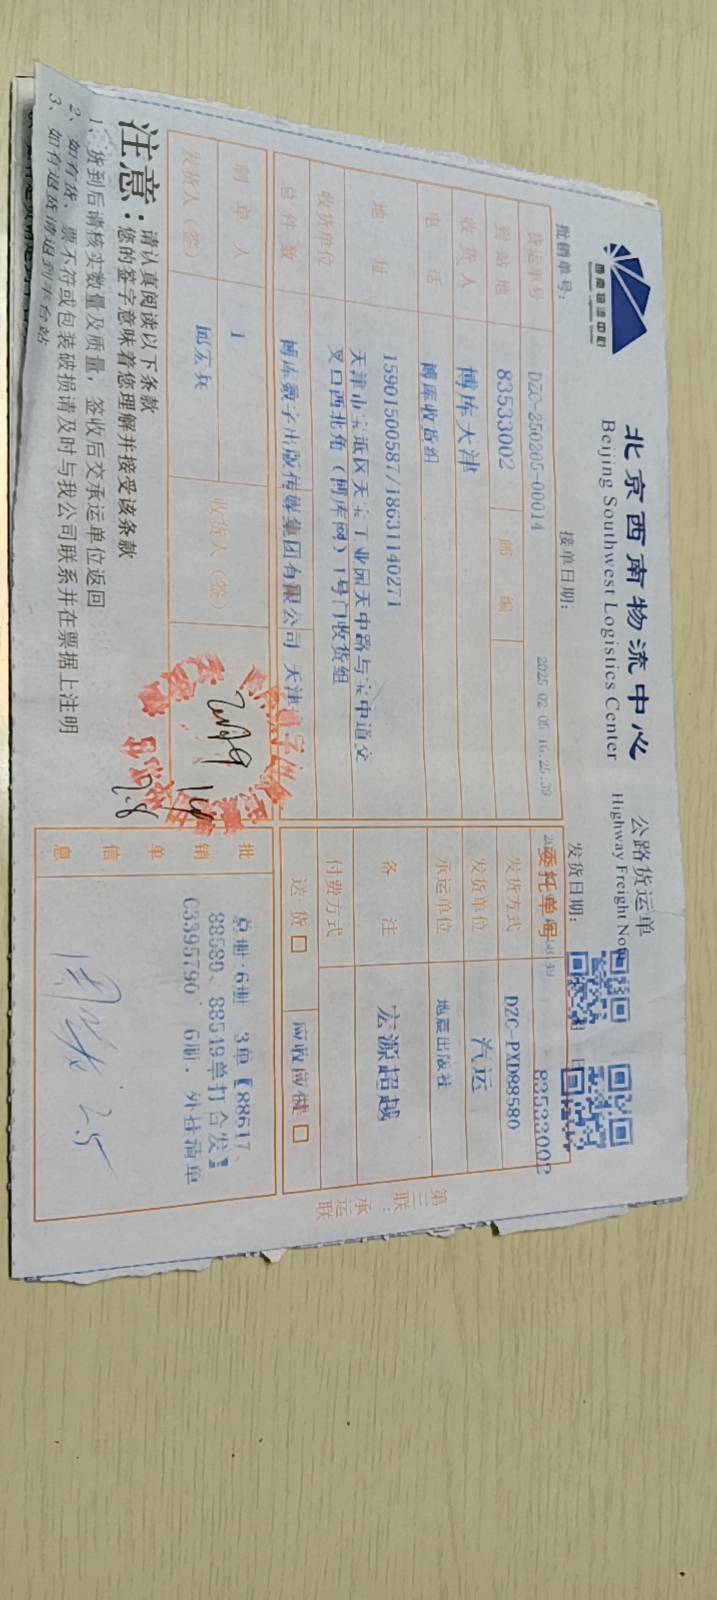 西南物流中心
北京西南物流中心
Beijing Southwest Logistics Center
公路货运单
Highway Freight Note
批销单号：
接单日期：
发货日期：
货运单号 DZC-250205-00014 2025-02-05 16:25:39
委托单号 83533002
到站地 83533002 邮编
发货方式 DZC-PXD88580
收货人 博库天津
发货单位 汽运
电话 博库收货组
承运单位 地震出版社
地址 15901500587/18631140271
天津市宝坻区天宝工业园天中路与宝中道交
叉口西北角（博库网）1号门收货组
备注 宏源超越
收货单位 博库数字出版传媒集团有限公司 天津
付费方式
总件数 1
送货 □
制单人 邱宏兵
发货人（签）
收货人（签）
批销单信息
总册:6册 3单【88617、
88580、88549单打合发】
C3395790 6册，外挂清单
2.5
第三联：承运联
注意：
请认真阅读以下条款
您的签字意味着您理解并接受该条款
1、货到后请核实数量及质量，签收后交承运单位返回
2、如有货、票不符或包装破损请及时与我公司联系并在票据上注明
3、如有退货请退到丰台站